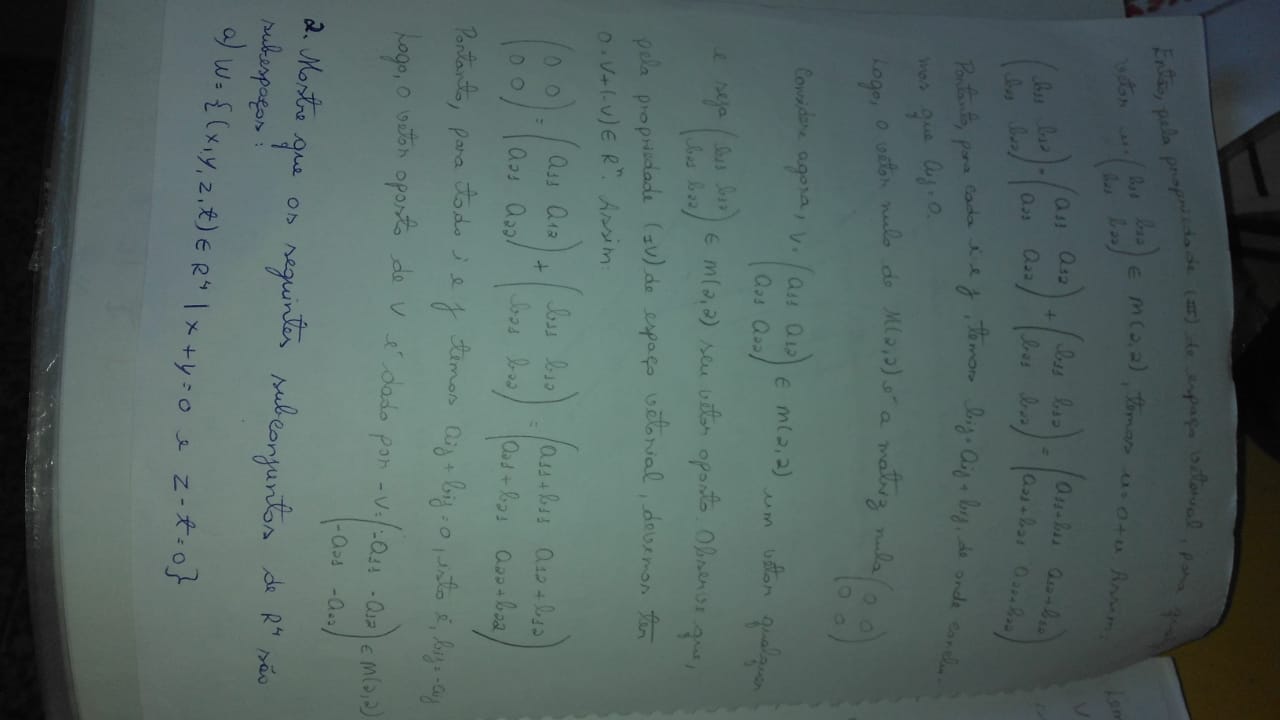 Então, pela propriedade (III) de espaço vetorial, para
vetor u = (b11 b12) ∈ M(2,2), temos u = 0 + u Assim:
(b21 b22)
(b11 b12) = (a11 a12) + (b11 b12) = (a11+b11 a12+b12)
(b21 b22) (a21 a22) (b21 b22) (a21+b21 a22+b22)
Portanto, para cada i e j, temos bij = aij + bij, de onde conclu-
mos que aij = 0.
Logo, o vetor nulo de M(2,2) é a matriz nula (0 0)
(0 0)
Considere agora, V = (a11 a12) ∈ M(2,2) um vetor qualquer
(a21 a22)
e seja (b11 b12) ∈ M(2,2) seu vetor oposto. Observe que,
(b21 b22)
pela propriedade (IV) de espaço vetorial, devemos ter
0 = V + (-V) ∈ R^n. Assim:
(0 0) = (a11 a12) + (b11 b12) = (a11+b11 a12+b12)
(0 0) (a21 a22) (b21 b22) (a21+b21 a22+b22)
Portanto, para todo i e j temos aij + bij = 0, isto é, bij = -aij
Logo, o vetor oposto de V é dado por -V = (-a11 -a12) ∈ M(2,2)
(-a21 -a22)
2. Mostre que os seguintes subconjuntos de R⁴ são
subespaços:
a) W = {(x, y, z, t) ∈ R⁴ | x + y = 0 e z - t = 0}